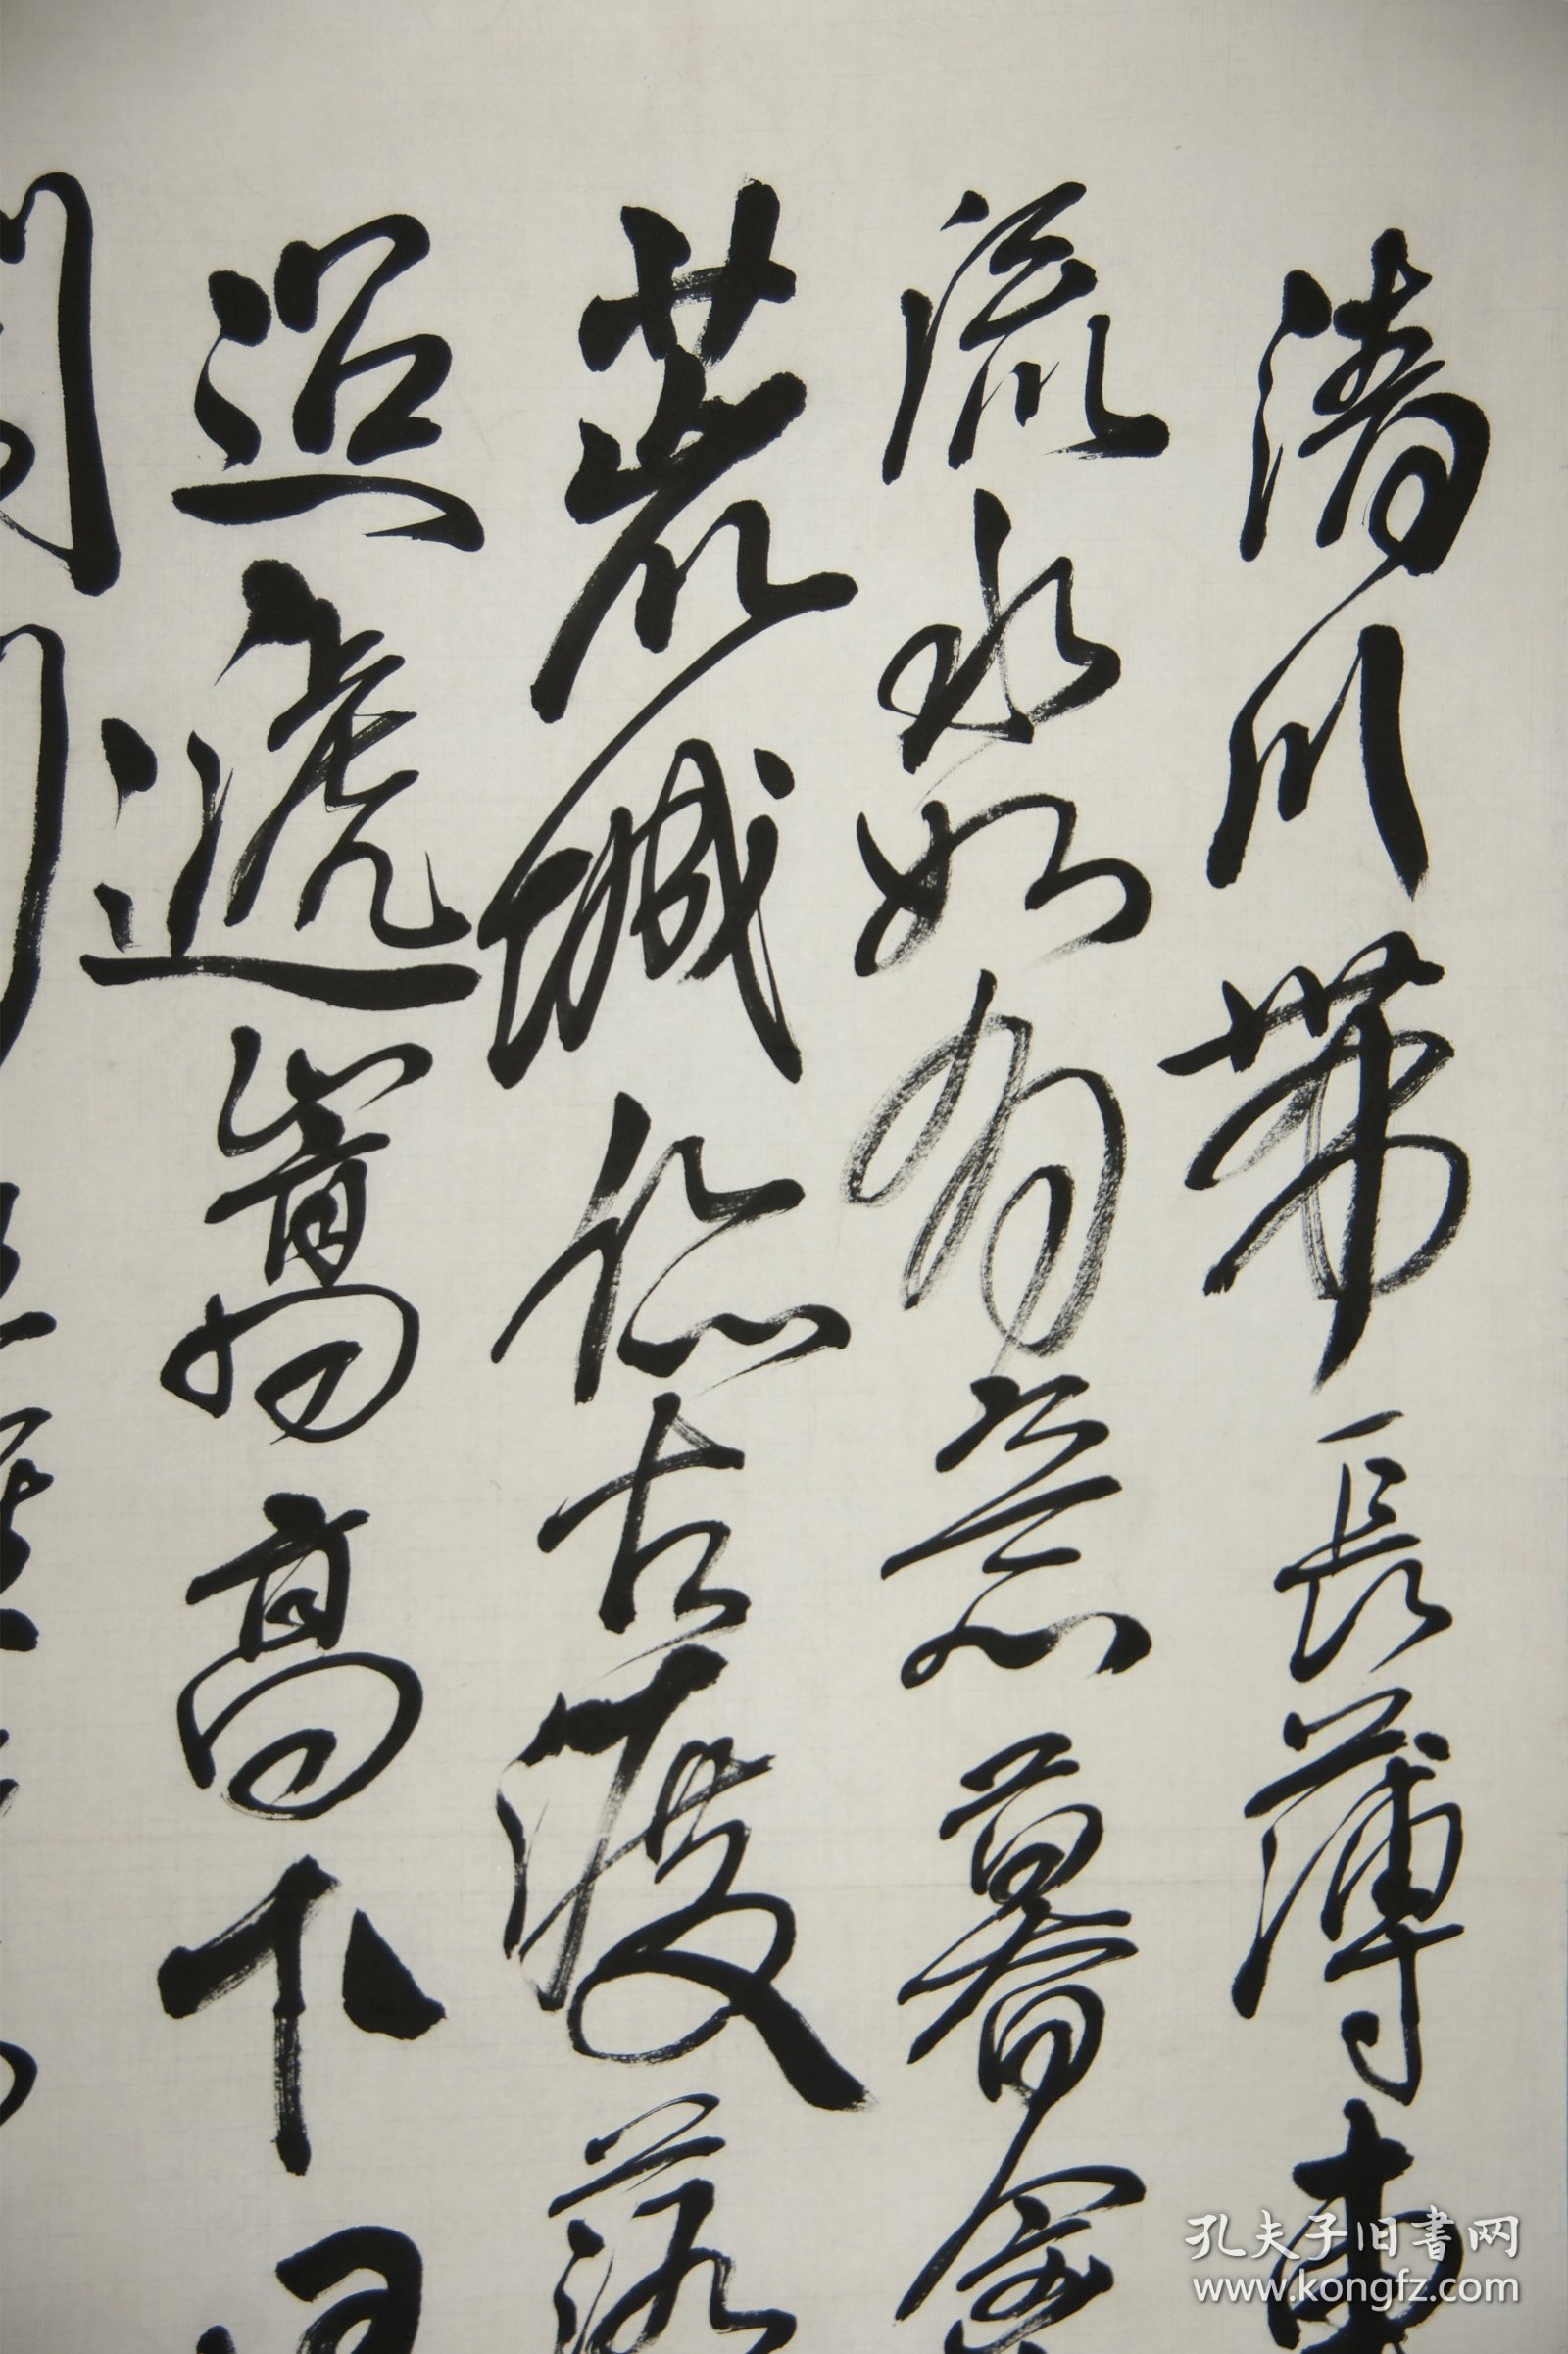 清川帶長薄車
流水如有意暮禽
荒城臨古渡落
迢遞嵩高下
孔夫子旧書网
www.kongfz.com